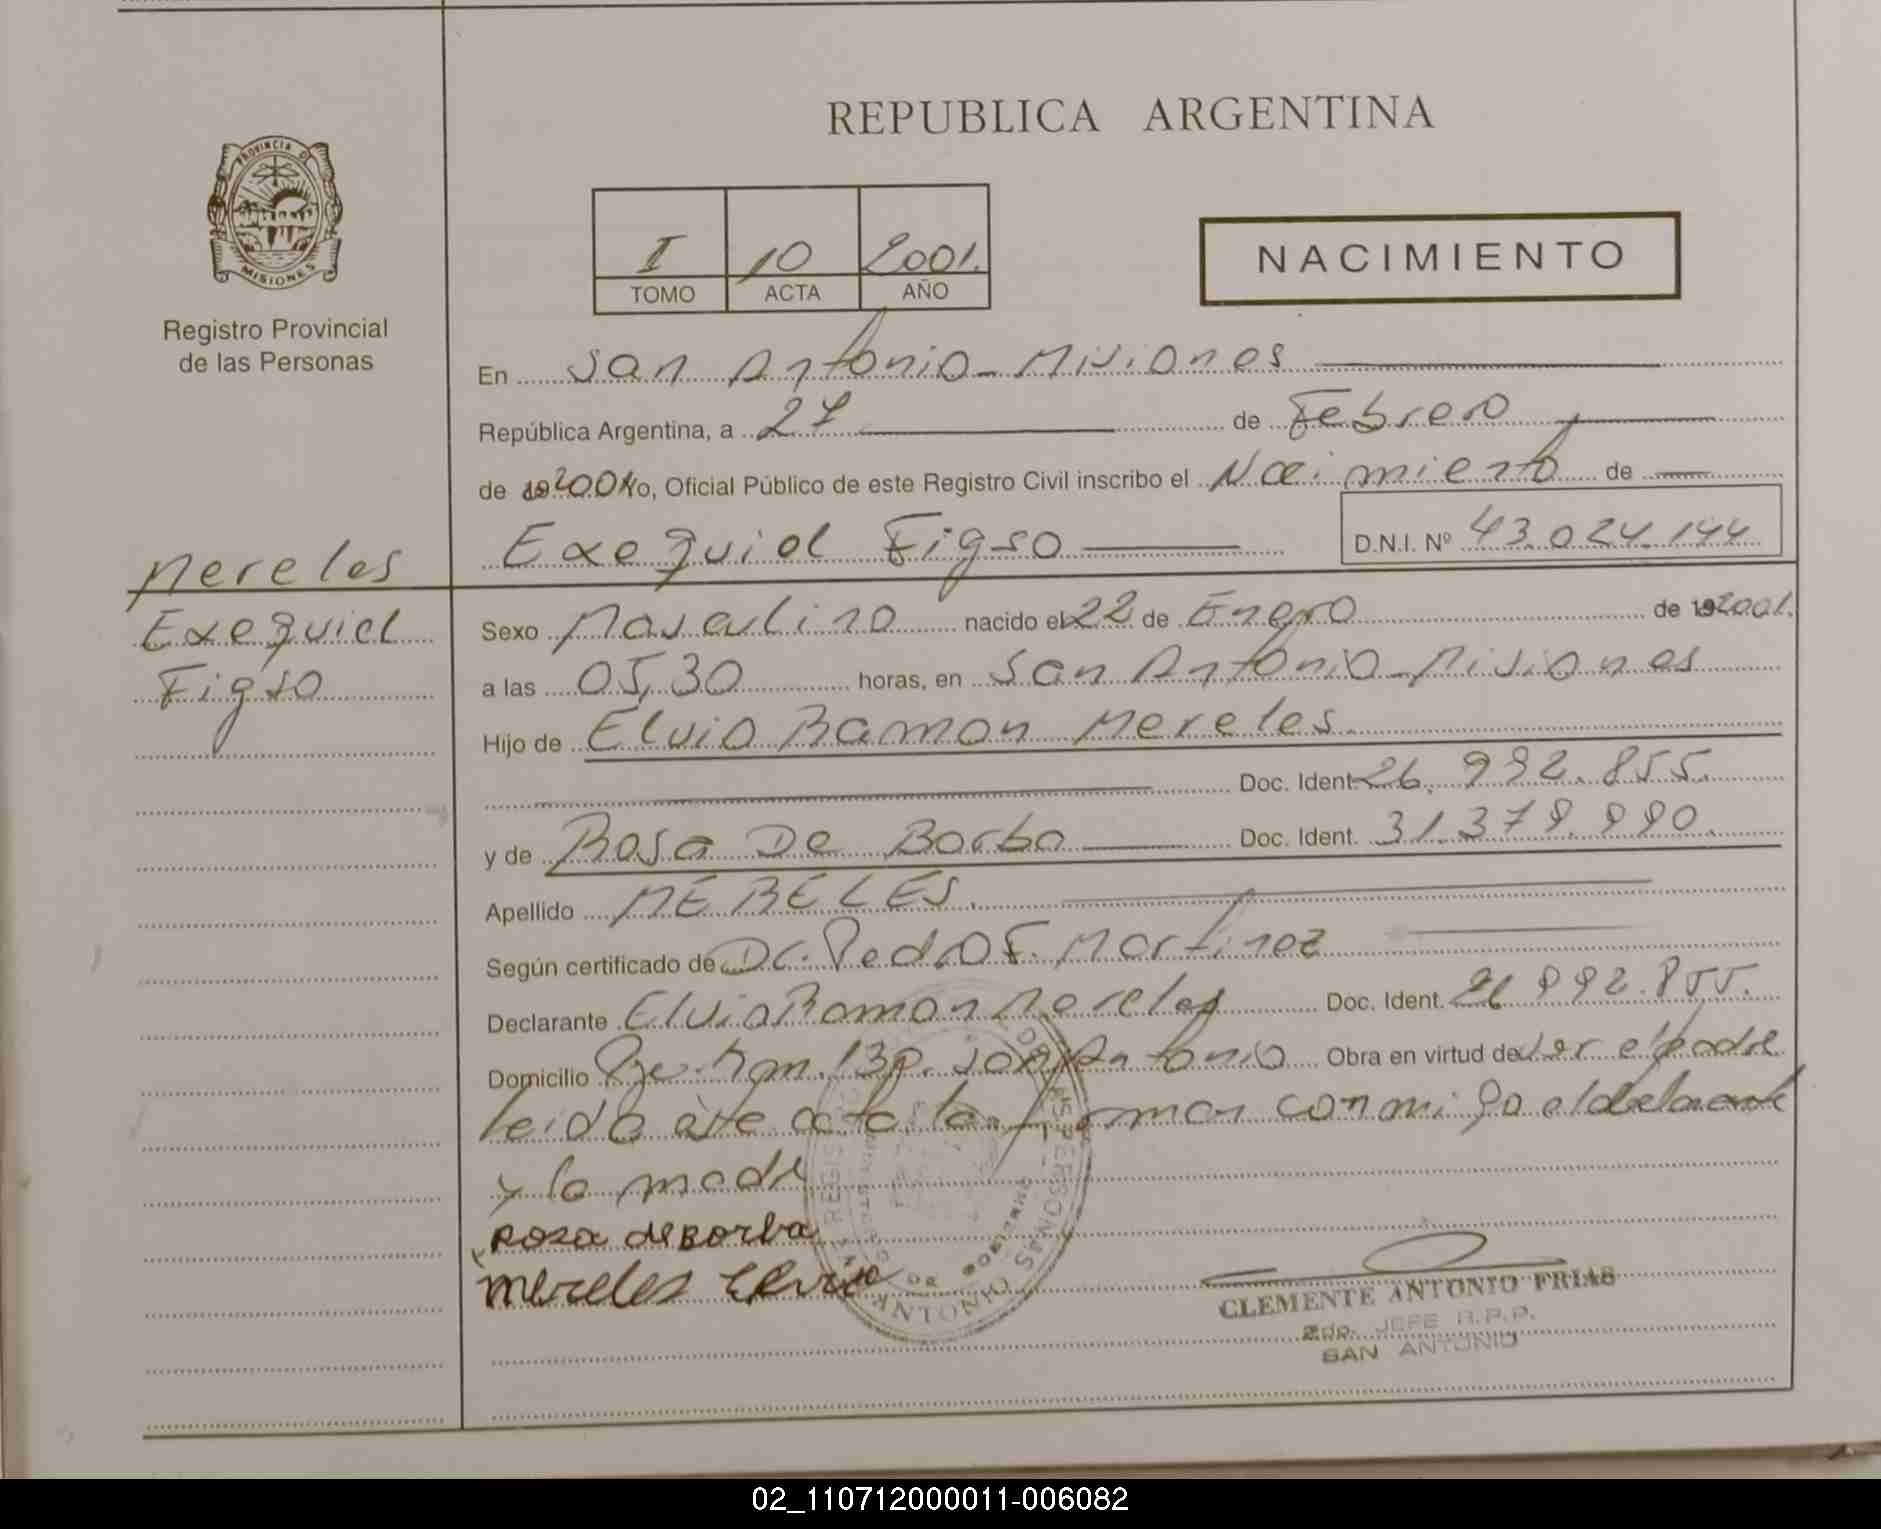 REPUBLICA ARGENTINA
PROVINCIA DE
MISIONES
Registro Provincial
de las Personas
I 10 2001.
TOMO ACTA AÑO
NACIMIENTO
En San Antonio - Misiones
República Argentina, a 27 de Febrero
de 2001 Yo, Oficial Público de este Registro Civil inscribo el Nacimiento de
Exequiel Figso
D.N.I. Nº 43.024.144
Mereles
Exequiel
Figso
Sexo Masculino nacido el 22 de Enero de 2001.
a las 05,30 horas, en San Antonio - Misiones
Hijo de Elvio Ramon Mereles.
Doc. Ident. 26.992.855.
y de Rosa De Borba Doc. Ident. 31.379.990.
Apellido MERELES.
Según certificado de Dr. Pedro F. Martinez
Declarante Elvio Ramon Mereles Doc. Ident. 26 992.855.
Domicilio Pje. Km. 13 p. San Antonio Obra en virtud de ser el padre
leida este acta la firman conmigo el declarante
y la madre
rosa deborba
mereles Elvio
CLEMENTE ANTONIO FRIAS
2do. JEFE R.P.P.
SAN ANTONIO
02_110712000011-006082